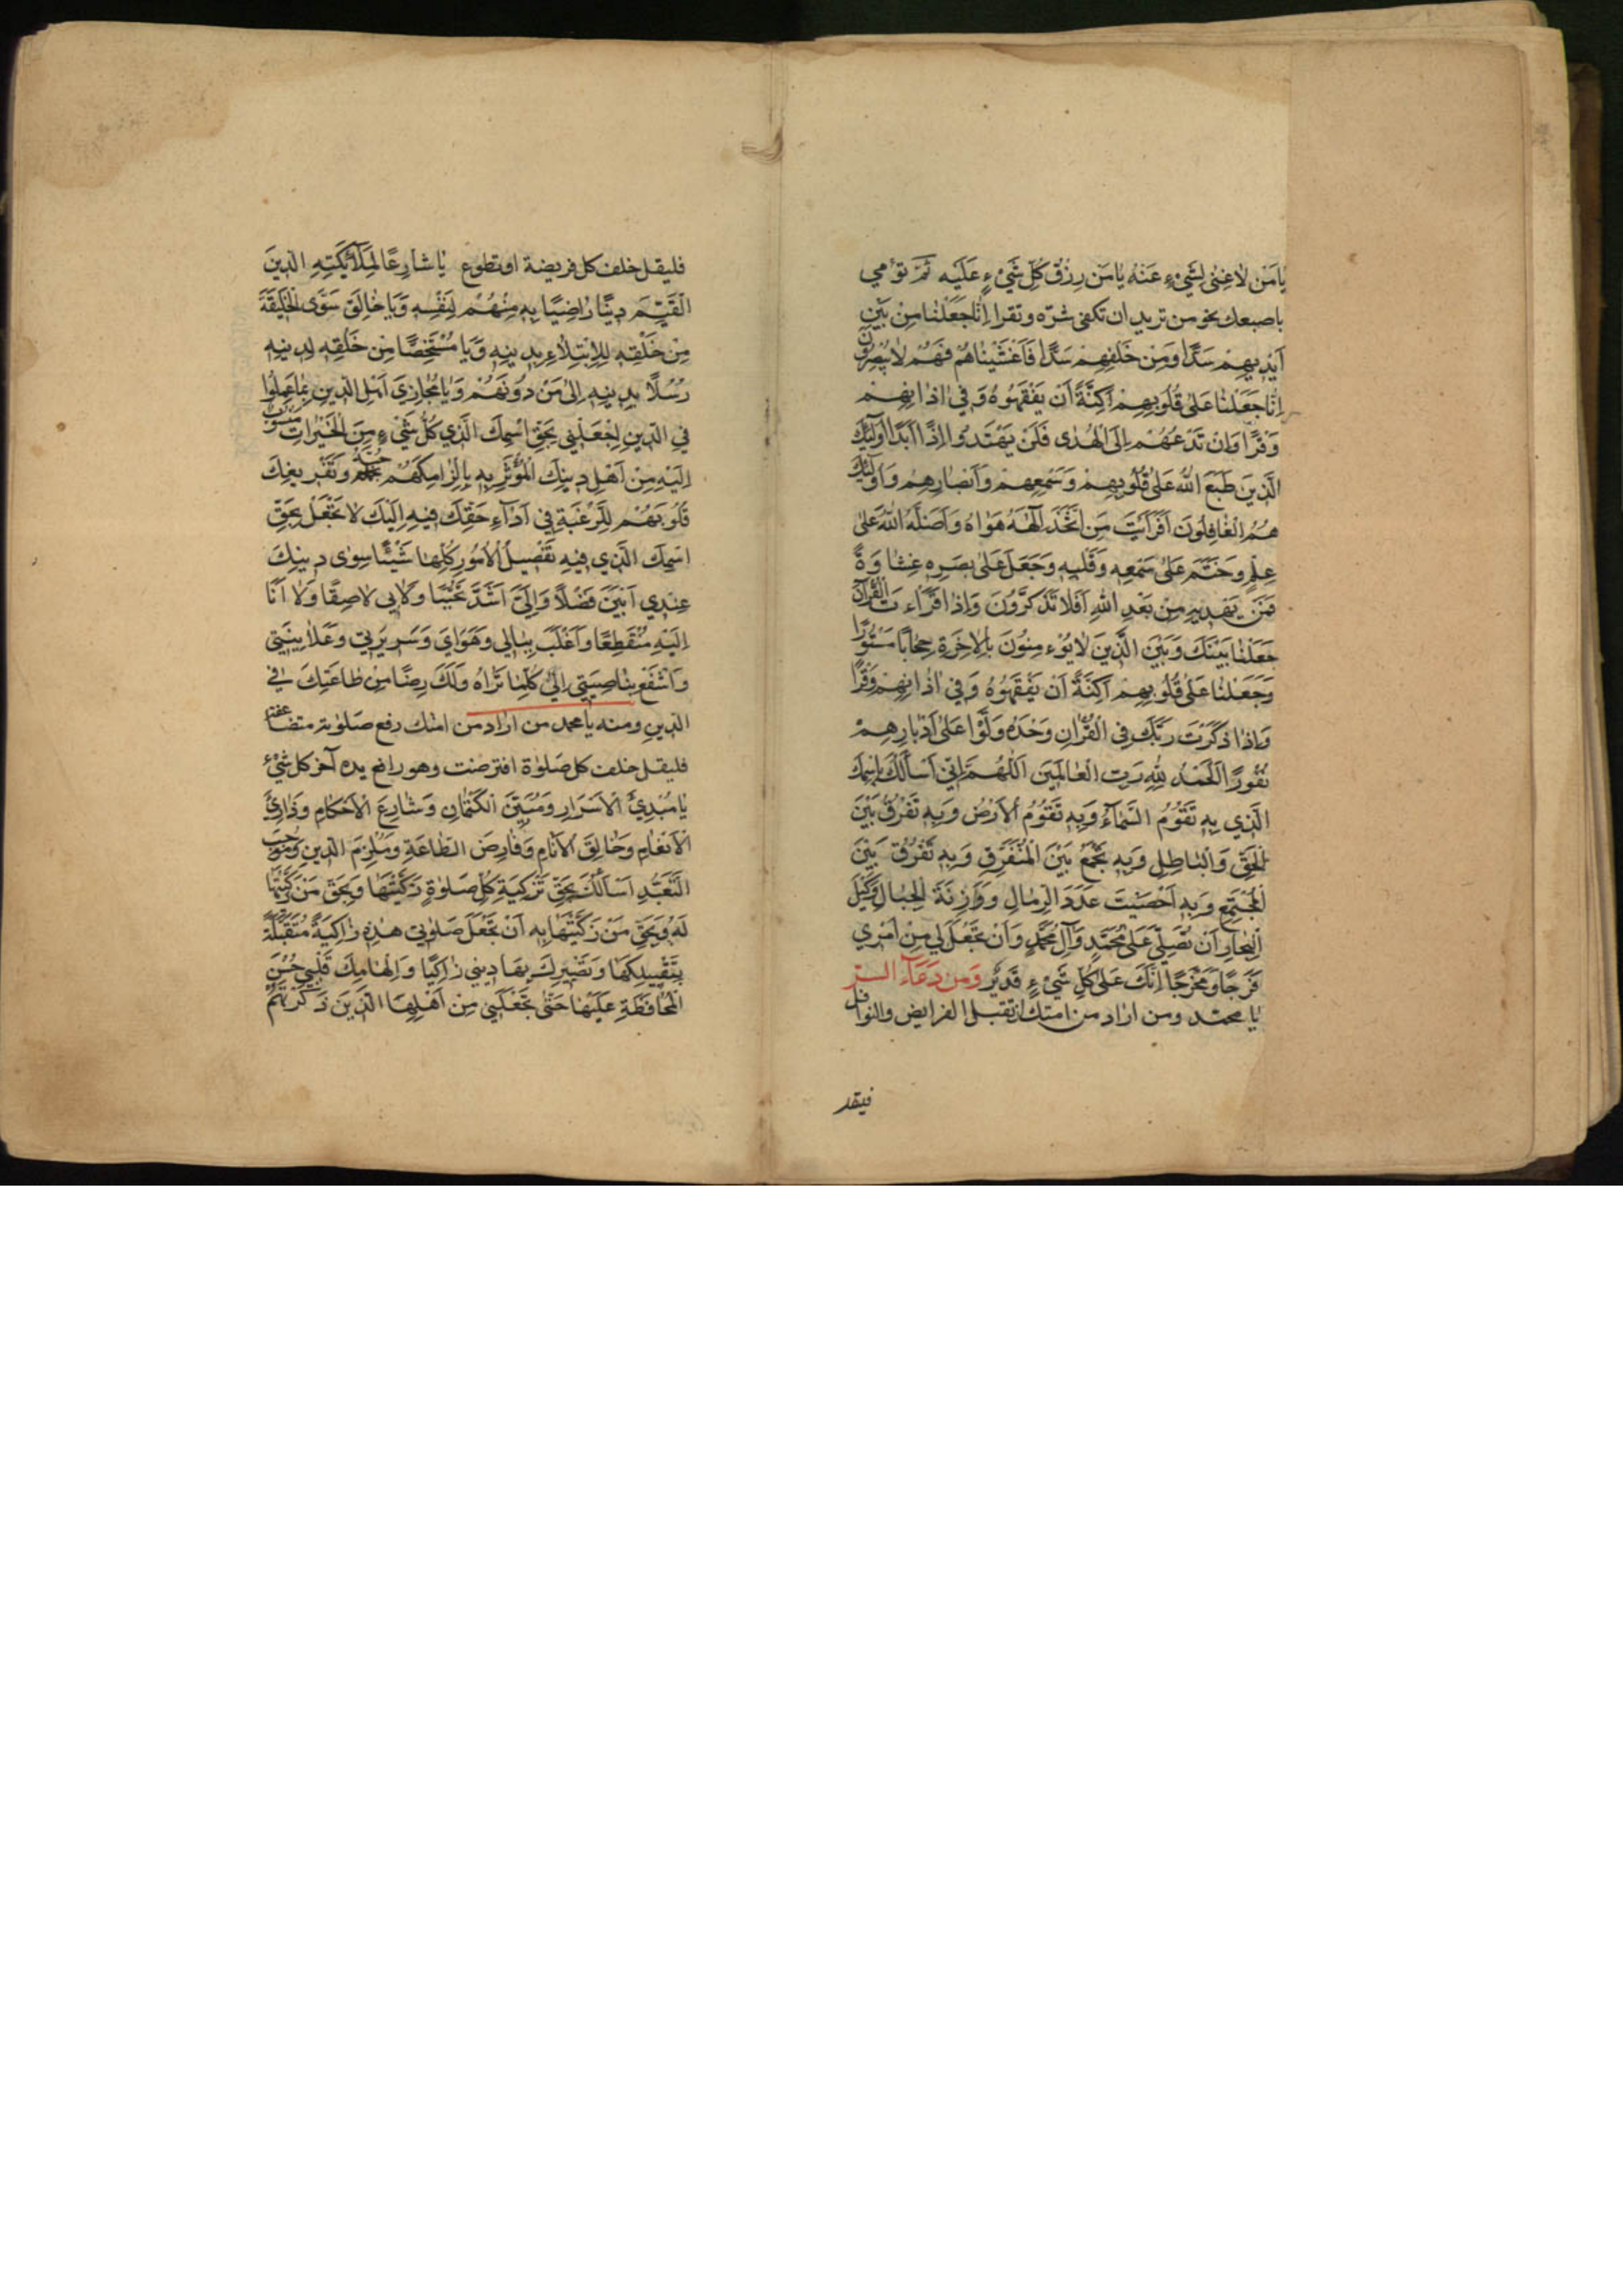 يٰا مَنْ لٰا غِنٰى لِشَيْءٍ عَنْهُ يٰا مَنْ رِزْقُ كُلِّ شَيْءٍ عَلَيْهِ ثُمَّ تؤمي
باصبعك نحو من تريد ان تكفى شرّه وتقرا اِنّٰا جَعَلْنٰا مِنْ بَيْنِ
اَيْدِيهِمْ سَدًّا وَمِنْ خَلْفِهِمْ سَدًّا فَاَغْشَيْنٰاهُمْ فَهُمْ لٰا يُبْصِرُونَ
اِنّٰا جَعَلْنٰا عَلٰى قُلُوبِهِمْ اَكِنَّةً اَنْ يَفْقَهُوهُ وَفِي اٰذٰانِهِمْ
وَقْرًا وَاِنْ تَدْعُهُمْ اِلَى الْهُدٰى فَلَنْ يَهْتَدُوا اِذًا اَبَدًا اُولٰئِكَ
الَّذِينَ طَبَعَ اللّٰهُ عَلٰى قُلُوبِهِمْ وَسَمْعِهِمْ وَاَبْصٰارِهِمْ وَاُولٰئِكَ
هُمُ الْغٰافِلُونَ اَفَرَاَيْتَ مَنِ اتَّخَذَ اِلٰهَهُ هَوٰاهُ وَاَضَلَّهُ اللّٰهُ عَلٰى
عِلْمٍ وَخَتَمَ عَلٰى سَمْعِهِ وَقَلْبِهِ وَجَعَلَ عَلٰى بَصَرِهِ غِشٰاوَةً
فَمَنْ يَهْدِيهِ مِنْ بَعْدِ اللّٰهِ اَفَلٰا تَذَكَّرُونَ وَاِذٰا قَرَاْتَ الْقُرْآنَ
جَعَلْنٰا بَيْنَكَ وَبَيْنَ الَّذِينَ لٰا يُؤْمِنُونَ بِالْاٰخِرَةِ حِجٰابًا مَسْتُورًا
وَجَعَلْنٰا عَلٰى قُلُوبِهِمْ اَكِنَّةً اَنْ يَفْقَهُوهُ وَفِي اٰذٰانِهِمْ وَقْرًا
وَاِذٰا ذَكَرْتَ رَبَّكَ فِي الْقُرْاٰنِ وَحْدَهُ وَلَّوْا عَلٰى اَدْبٰارِهِمْ
نُفُورًا اَلْحَمْدُ لِلّٰهِ رَبِّ الْعٰالَمِينَ اَللّٰهُمَّ اِنِّي اَسْاَلُكَ بِاسْمِكَ
الَّذِي بِهِ تَقُومُ السَّمٰآءُ وَبِهِ تَقُومُ الْاَرْضُ وَبِهِ تَفْرُقُ بَيْنَ
الْحَقِّ وَالْبٰاطِلِ وَبِهِ تَجْمَعُ بَيْنَ الْمُتَفَرِّقِ وَبِهِ تَفْرُقُ بَيْنَ
الْمُجْتَمِعِ وَبِهِ اَحْصَيْتَ عَدَدَ الرِّمٰالِ وَوٰازِنَةَ الْجِبٰالِ وَكَيْلَ
الْبِحٰارِ اَنْ تُصَلِّيَ عَلٰى مُحَمَّدٍ وَآلِ مُحَمَّدٍ وَاَنْ تَجْعَلَ لِي مِنْ اَمْرِي
فَرَجًا وَمَخْرَجًا اِنَّكَ عَلٰى كُلِّ شَيْءٍ قَدِيرٌ وَمن دعآء السر
يٰا محمّد ومن اراد من امتك ان تقبل الفرايض والنوافل
فليقل
فليقل خلف كل فريضة او تطوع يٰا شارِعًا لِمَلٰآئِكَتِهِ الدِّينَ
الْقَيِّمَ دِينًا رٰاضِيًا بِهِ مِنْهُمْ لِنَفْسِهِ وَيٰا خٰالِقَ سَوَى الْخَلِيقَةِ
مِنْ خَلْقِهِ لِلْاِبْتِلٰاءِ بِدِينِهِ وَيٰا مُسْتَخِصًّا مِنْ خَلْقِهِ لِدِينِهِ
رُسُلًا بِدِينِهِ اِلٰى مَنْ دُونَهُمْ وَيٰا مُجٰازِيَ اَهْلِ الدِّينِ بِمٰا عَمِلُوا
فِي الدِّينِ اِجْعَلْنِي بِحَقِّ اسْمِكَ الَّذِي كُلُّ شَيْءٍ مِنَ الْخَيْرٰاتِ مَنْسُوبٌ
اِلَيْهِ مِنْ اَهْلِ دِينِكَ الْمُؤْثَرِ بِهِ بِاِلْزٰامِكَهُمْ حُبَّهُ وَتَفْرِيغِكَ
قُلُوبَهُمْ لِلرَّغْبَةِ فِي اَدٰآءِ حَقِّكَ فِيهِ اِلَيْكَ لٰا تَجْعَلْ بِحَقِّ
اسْمِكَ الَّذِي فِيهِ تَفْصِيلُ الْاُمُورِ كُلِّهٰا شَيْئًا سِوٰى دِينِكَ
عِنْدِي اَبْيَنَ فَضْلًا وَاِلَيَّ اَشَدَّ تَحَبُّبًا وَلٰا بِي لٰاصِقًا وَلٰا اَنٰا
اِلَيْهِ مُنْقَطِعًا وَاَغْلَبَ بِبٰالِي وَهَوٰايَ وَسَرِيرَتِي وَعَلٰانِيَتِي
وَاشْفَعْ بِنٰاصِيَتِي اِلٰى كُلِّمٰا تَرٰاهُ وَلَكَ رِضًا مِنْ طٰاعَتِكَ فِي
الدِّينِ ومنه يٰا محمد من اراد من امتك رفع صلوته متضاعفة
فليقل خلف كل صلوٰة افترضت وهو رافع يده آخر كل شيء
يٰا مُبْدِئَ الْاَسْرٰارِ وَمُبَيِّنَ الْكِتْمٰانِ وَشٰارِعَ الْاَحْكٰامِ وَذٰارِئَ
الْاَنْعٰامِ وَخٰالِقَ الْاَنٰامِ وَفٰارِضَ الطّٰاعَةِ وَمُلْزِمَ الدِّينِ وَمُوجِبَ
التَّعَبُّدِ اَسْاَلُكَ بِحَقِّ تَزْكِيَةِ كُلِّ صَلٰوةٍ زَكَّيْتَهٰا وَبِحَقِّ مَنْ زَكَّيْتَهٰا
لَهُ وَبِحَقِّ مَنْ زَكَّيْتَهٰا بِهِ اَنْ تَجْعَلَ صَلٰوتِي هٰذِهِ زٰاكِيَةً مُتَقَبَّلَةً
بِتَقْبِيلِكَهٰا وَتَصْيِيرِكَ بِهٰا دِينِي زٰاكِيًا وَاِلْهٰامِكَ قَلْبِي حُسْنَ
الْمُحٰافَظَةِ عَلَيْهٰا حَتّٰى تَجْعَلَنِي مِنْ اَهْلِهَا الَّذِينَ ذَكَرْتَهُمْ